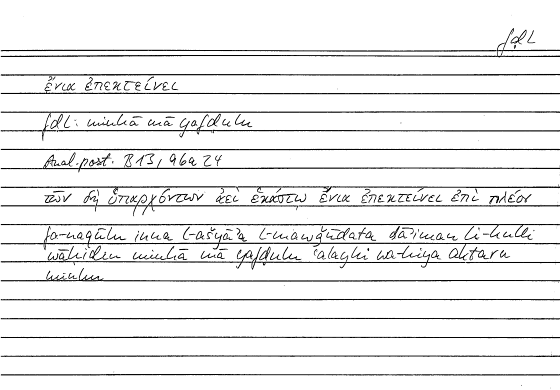 fḍl
ἔνια ἐπεκτείνει
fḍl: minhā mā yafḍulu
Anal. post. B 13, 96a 24
τῶν δὴ ὑπαρχόντων ἀεὶ ἑκάστῳ ἔνια ἐπεκτείνει ἐπὶ πλέον
fa-naqūlu inna l-ašyāʾa l-mawǧūdata dāʾiman li-kulli
wāḥidin minhā mā yafḍulu ʿalayhi wa-hiya akṯaru
minhu